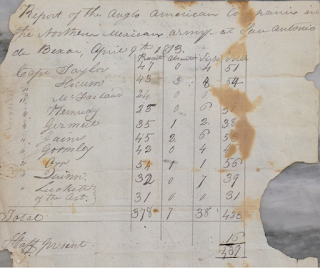 Report of the Anglo American Companies in
the Northern Mexican army at San Antonio
de Bexar, April 9th 1813.
Present Absent Sick Total
Capt Taylor 47 0 4 51
" Slocum 43 3 8 54
" McFarland 24 0
" Kennedy 28 0 6
" 35 1 2 38
" Gaines 45 2 6
" Gormley 42 0 4
" 51 1 1 53
" Quinn 32 0 7 39
" Luckett 31 0 0 31
of the Art.
Total 378 7 38 423
Staff present 15